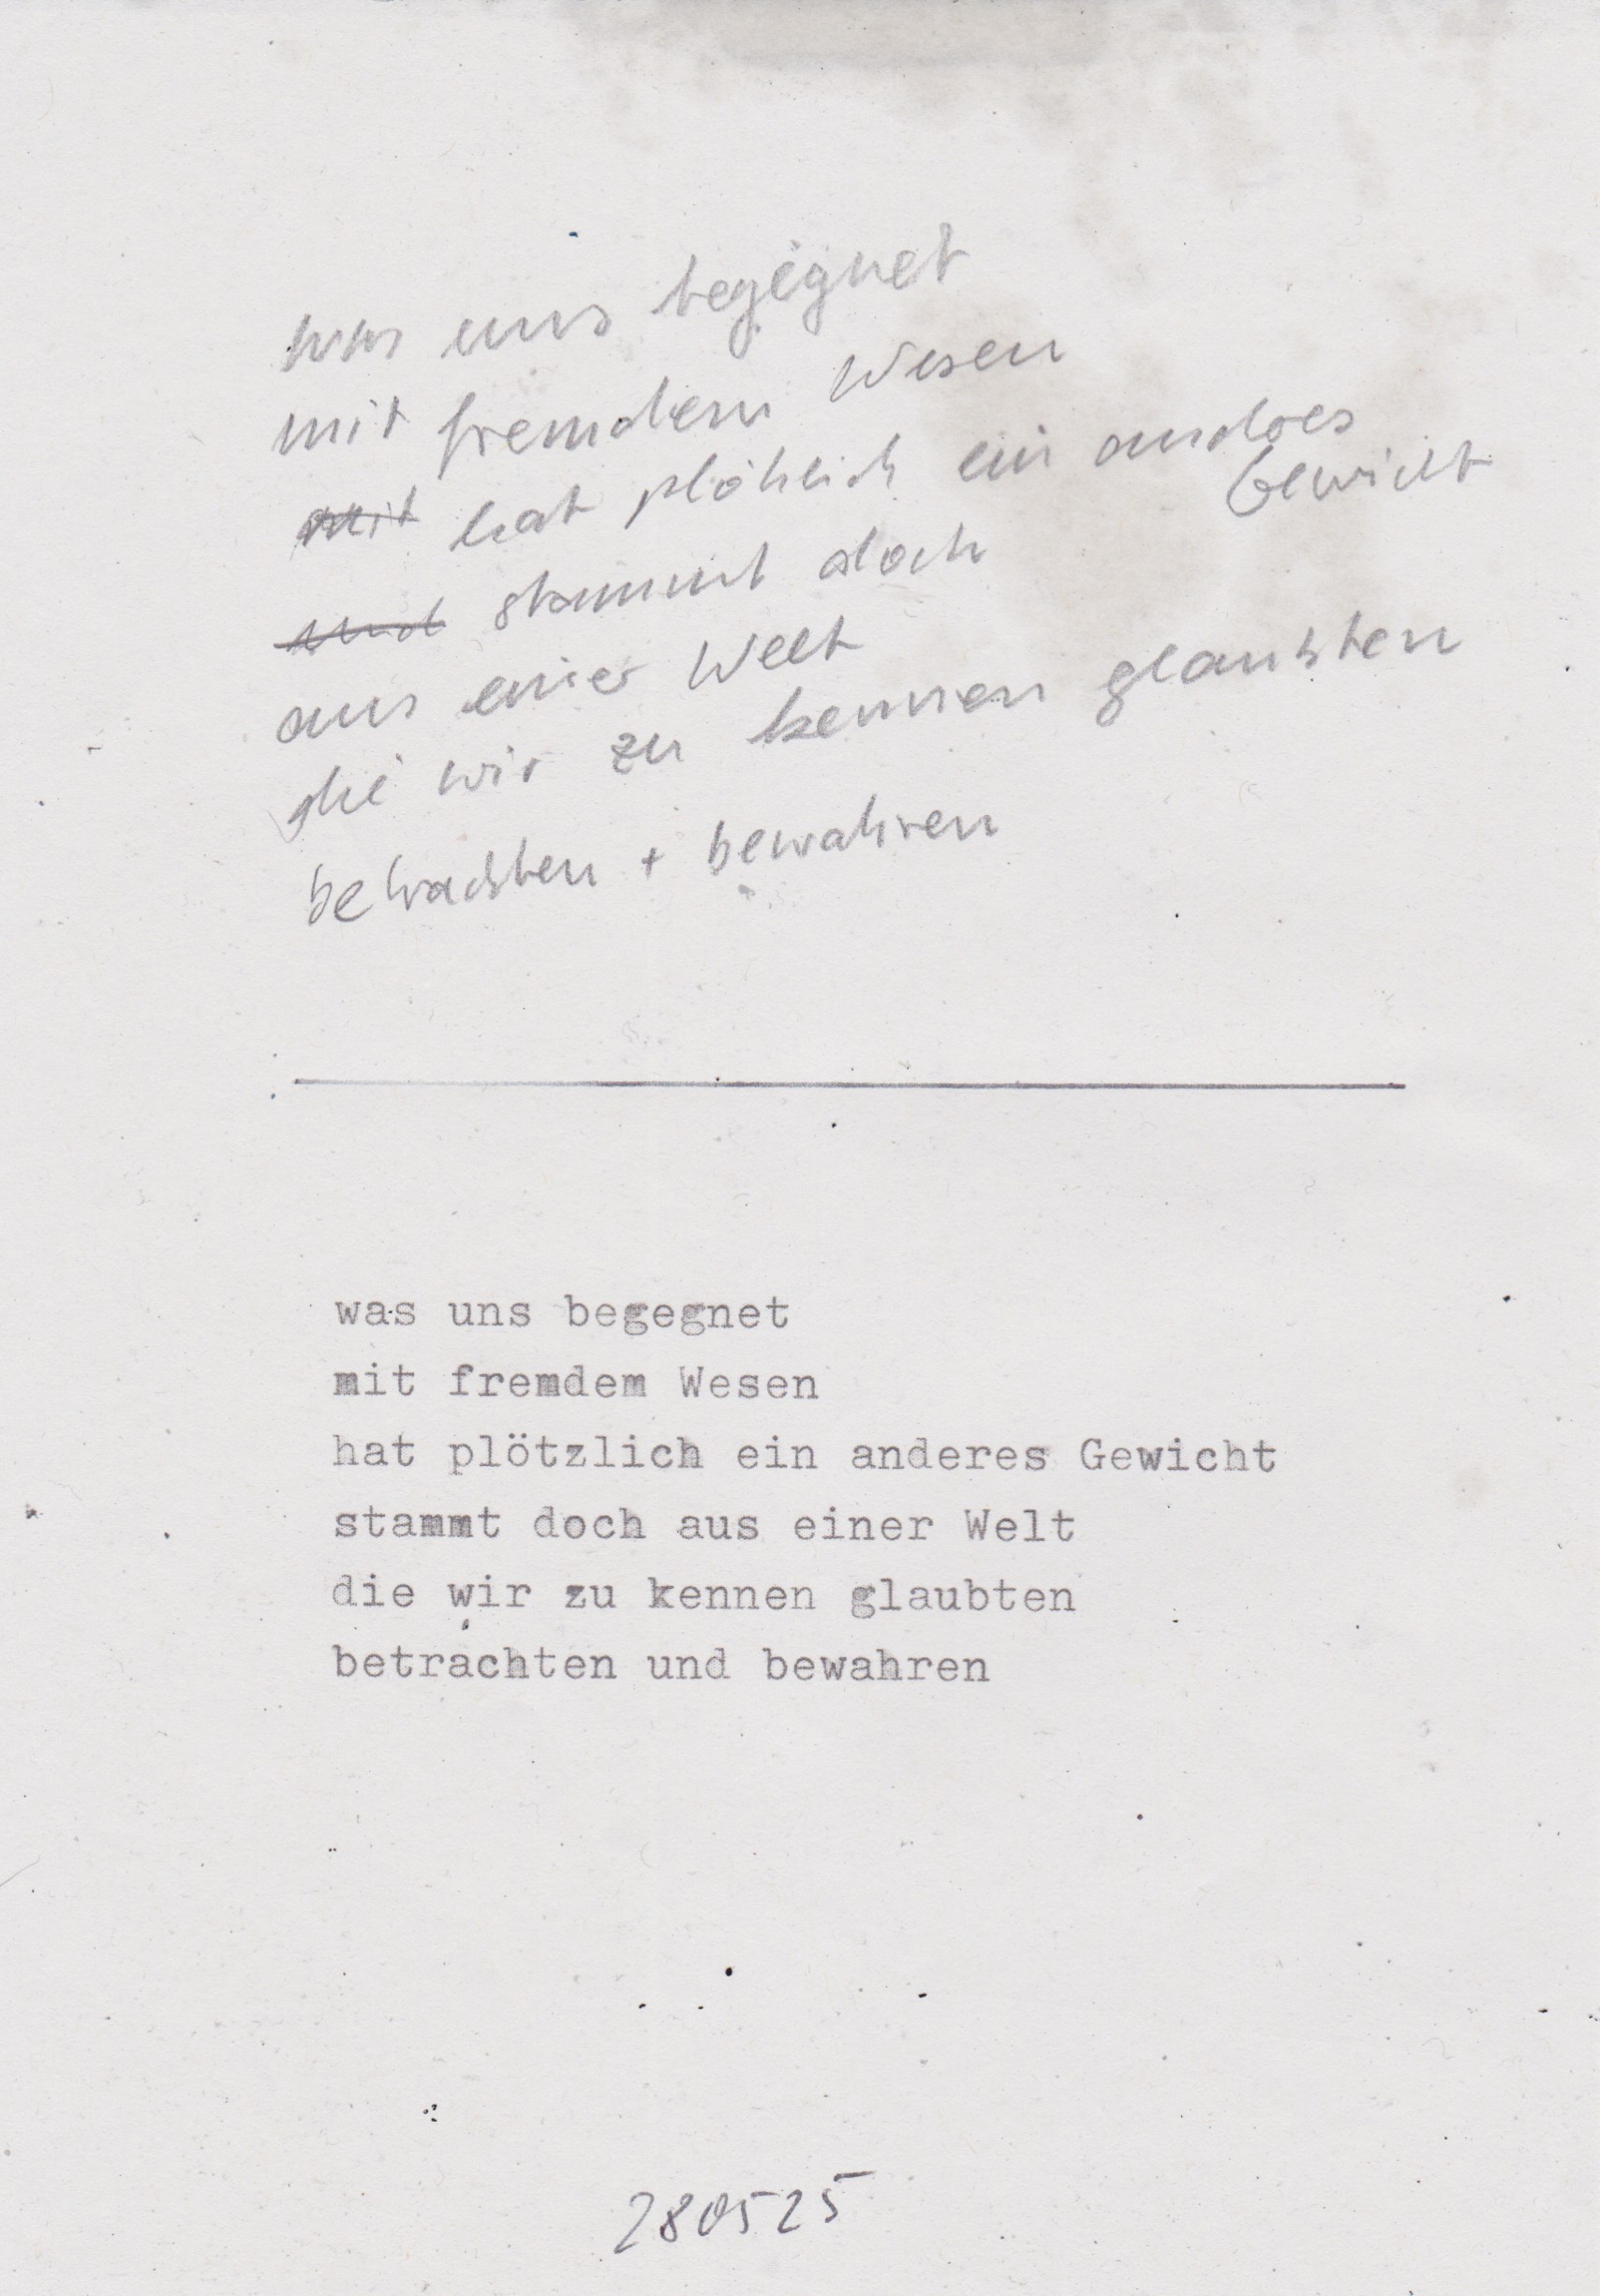 was uns begegnet
mit fremdem Wesen
mit hat plötzlich ein anderes
Gewicht
und stammt doch
aus einer Welt
die wir zu kennen glaubten
betrachten + bewahren
was uns begegnet
mit fremdem Wesen
hat plötzlich ein anderes Gewicht
stammt doch aus einer Welt
die wir zu kennen glaubten
betrachten und bewahren
280525